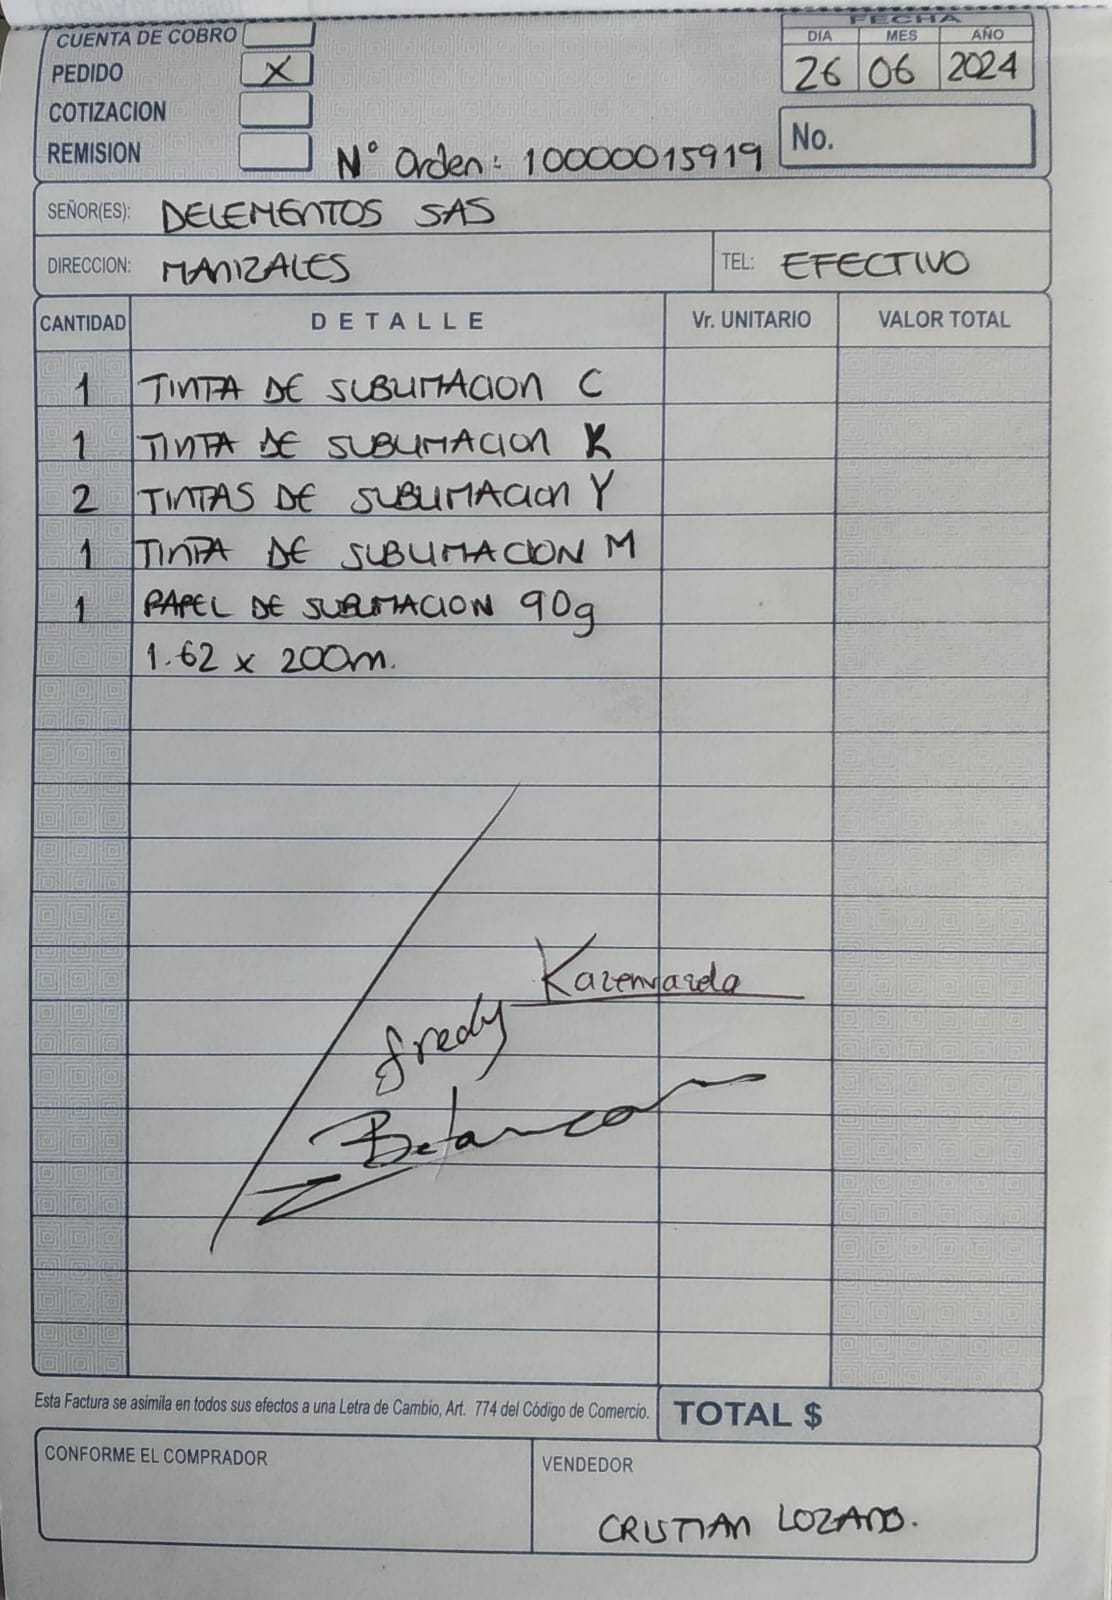 CUENTA DE COBRO
PEDIDO X
COTIZACION
REMISION
FECHA
DIA MES AÑO
26 06 2024
No.
N° Orden: 10000015919
SEÑOR(ES): DELEMENTOS SAS
DIRECCION: MANIZALES TEL: EFECTIVO
CANTIDAD DETALLE Vr. UNITARIO VALOR TOTAL
1 TINTA DE SUBLIMACION C
1 TINTA DE SUBLIMACION K
2 TINTAS DE SUBLIMACION Y
1 TINTA DE SUBLIMACION M
1 PAPEL DE SUBLIMACION 90g
1.62 x 200m.
Fredy
Esta Factura se asimila en todos sus efectos a una Letra de Cambio, Art. 774 del Código de Comercio.
TOTAL $
CONFORME EL COMPRADOR
VENDEDOR
CRISTIAN LOZANO.